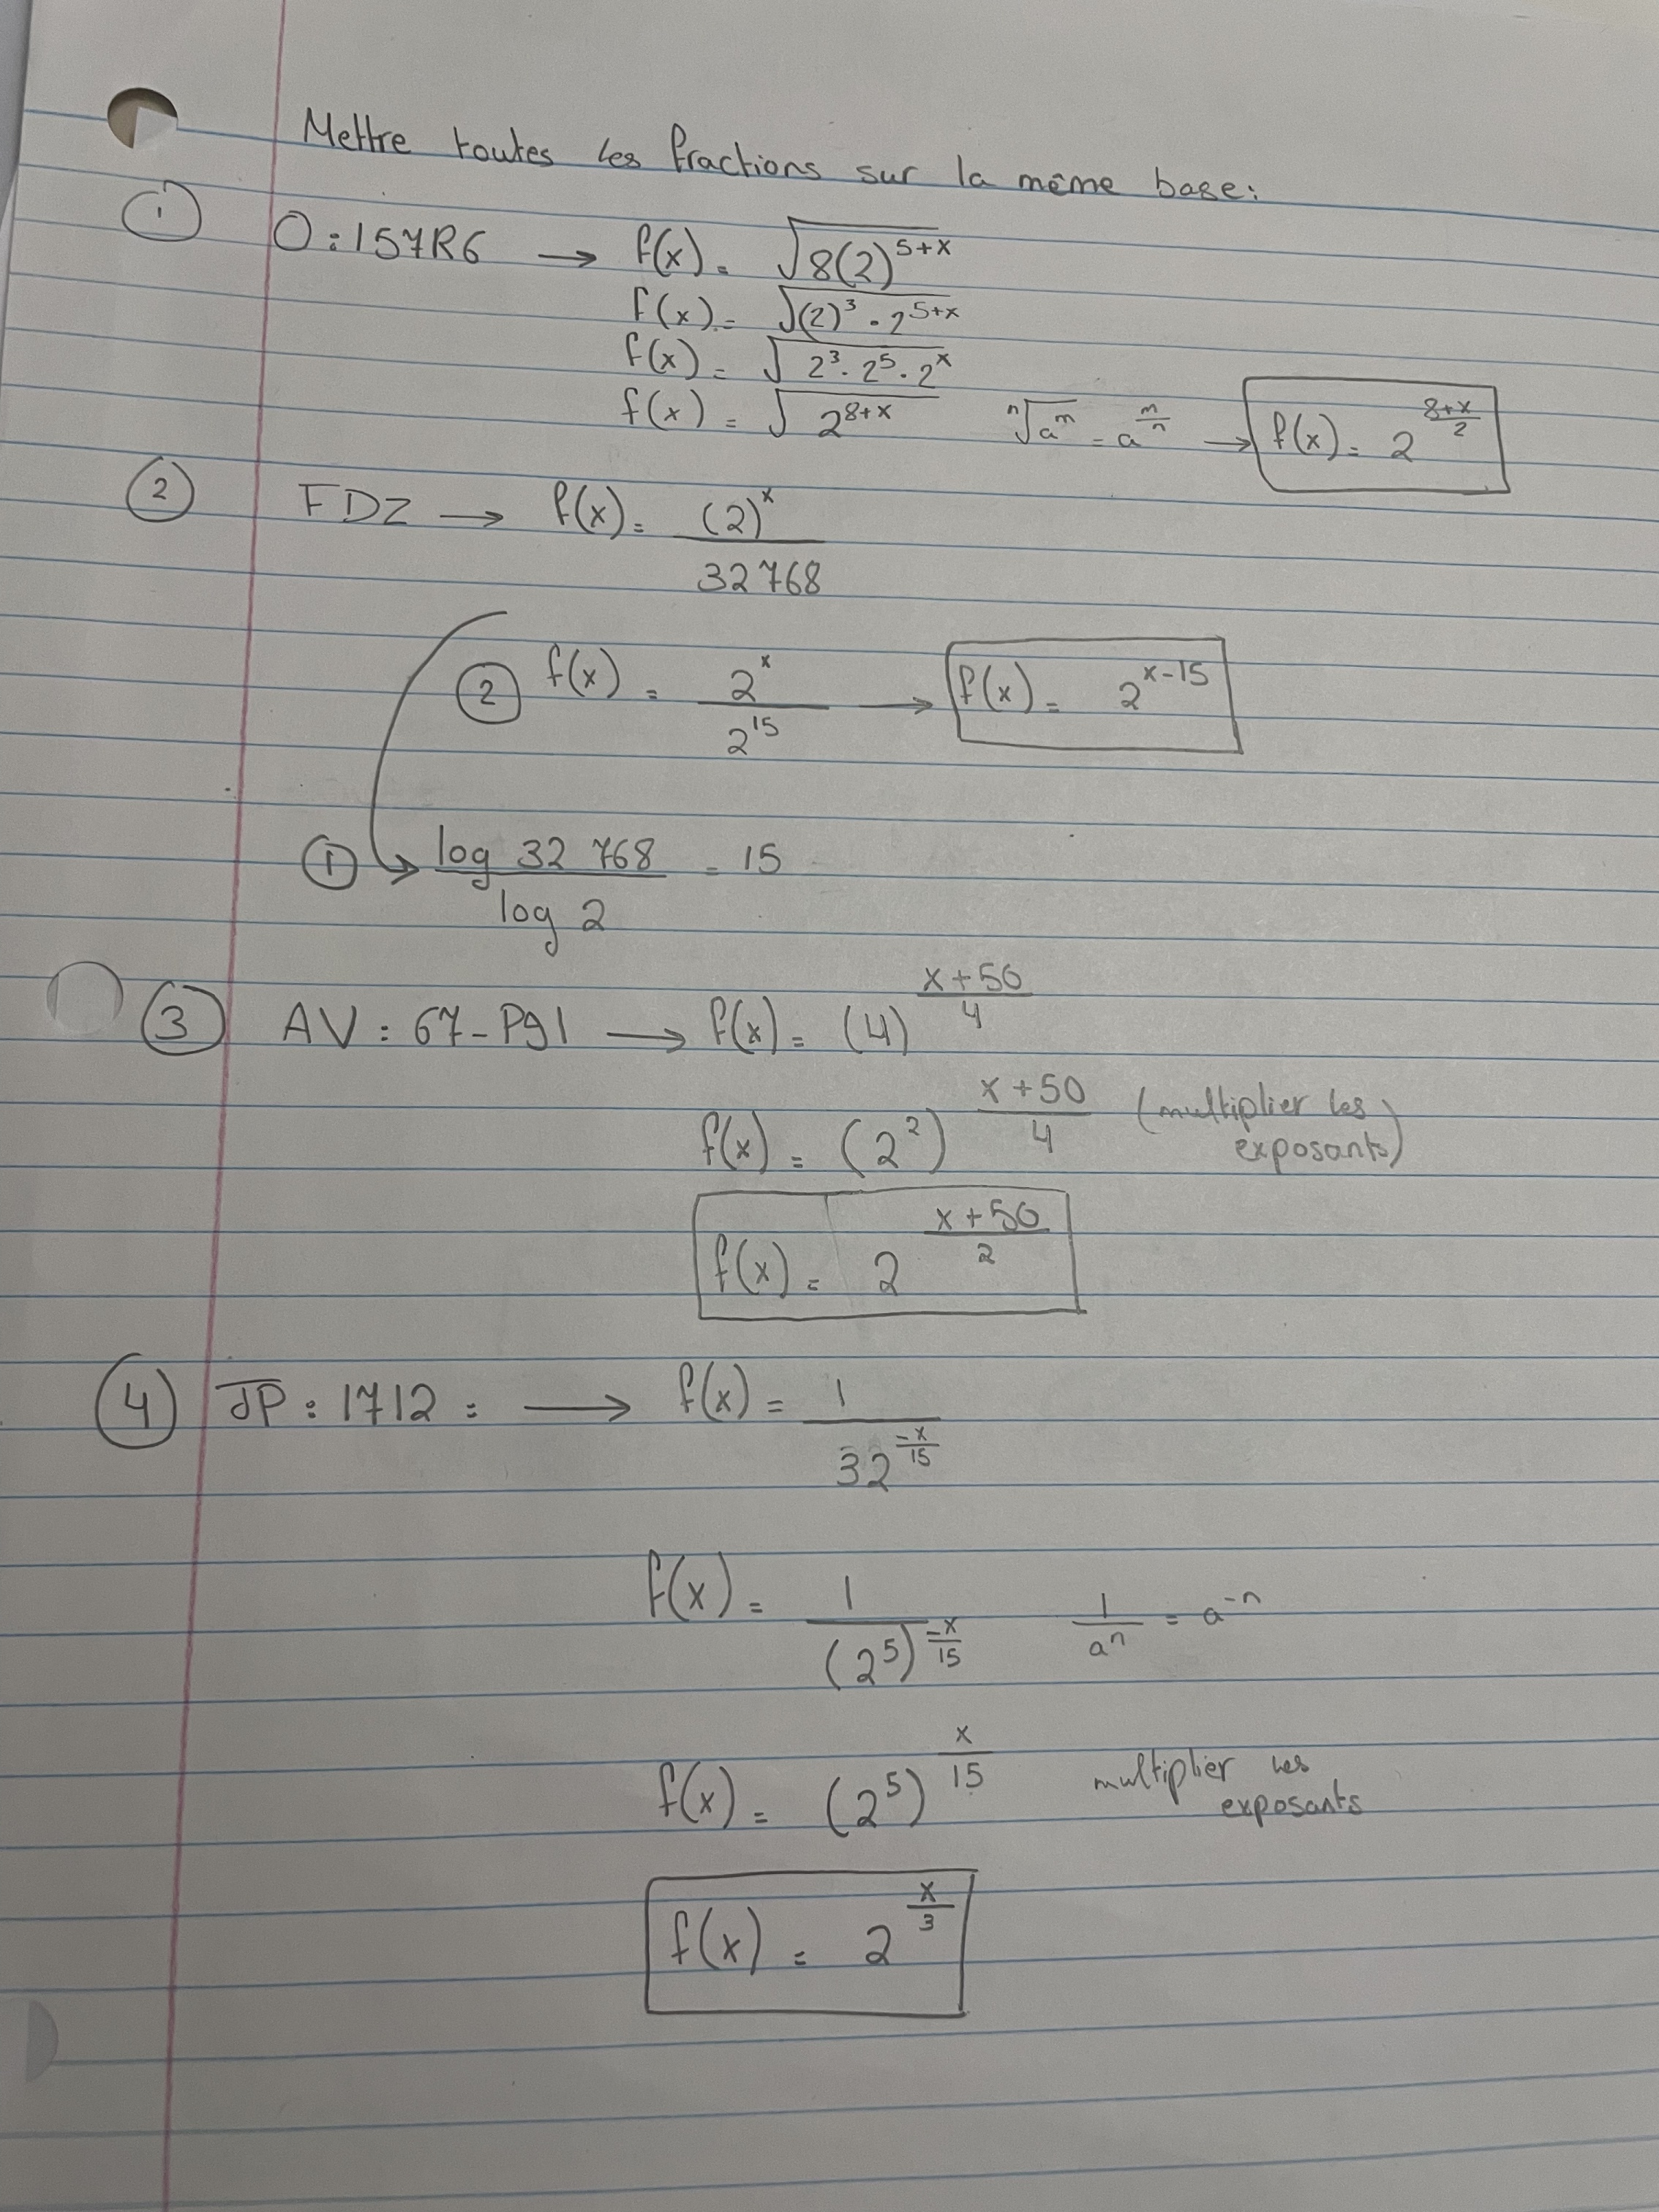 Mettre toutes les fractions sur la même base:
① O:157R6 → f(x) = √(8(2)^(5+x))
f(x) = √((2)³ · 2^(5+x))
f(x) = √(2³ · 2⁵ · 2^x)
f(x) = √(2^(8+x)) ⁿ√(a^m) = a^(m/n) → f(x) = 2^((8+x)/2)
② FDZ → f(x) = (2)^x / 32768
② f(x) = 2^x / 2^15 → f(x) = 2^(x-15)
① log 32 768 / log 2 = 15
③ AV: 67-P91 → f(x) = (4)^((x+50)/4)
f(x) = (2²)^((x+50)/4) (multiplier les exposants)
f(x) = 2^((x+50)/2)
④ JP: 1712: → f(x) = 1 / 32^(-x/15)
f(x) = 1 / (2⁵)^(-x/15) 1/aⁿ = a^(-n)
f(x) = (2⁵)^(x/15) multiplier les exposants
f(x) = 2^(x/3)